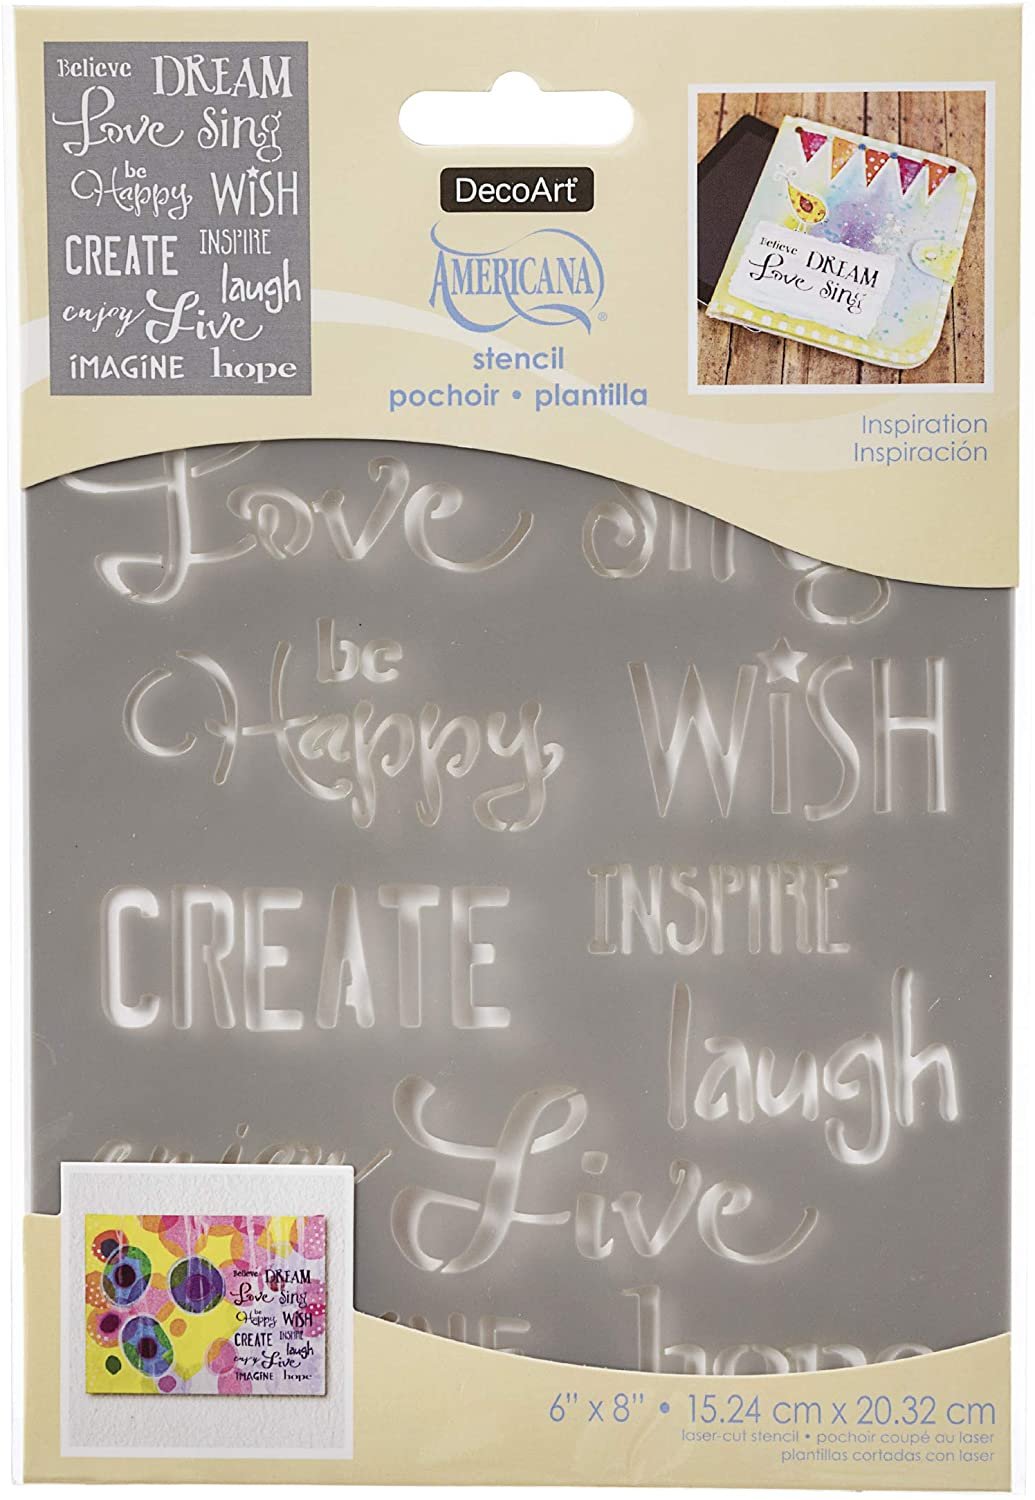 Believe DREAM
Love Sing
be
Happy WiSH
CREATE INSPIRE
laugh
enjoy Live
iMAGiNE hope
DecoArt®
AMERICANA®
stencil
pochoir • plantilla
Believe DREAM
Love Sing
Inspiration
Inspiración
Love Sing
be
Happy WiSH
CREATE INSPIRE
laugh
enjoy Live
NE hope
Believe DREAM
Love Sing
be
Happy WiSH
CREATE INSPIRE
laugh
enjoy Live
iMAGiNE hope
6" x 8" • 15.24 cm x 20.32 cm
laser-cut stencil • pochoir coupé au laser
plantillas cortadas con laser